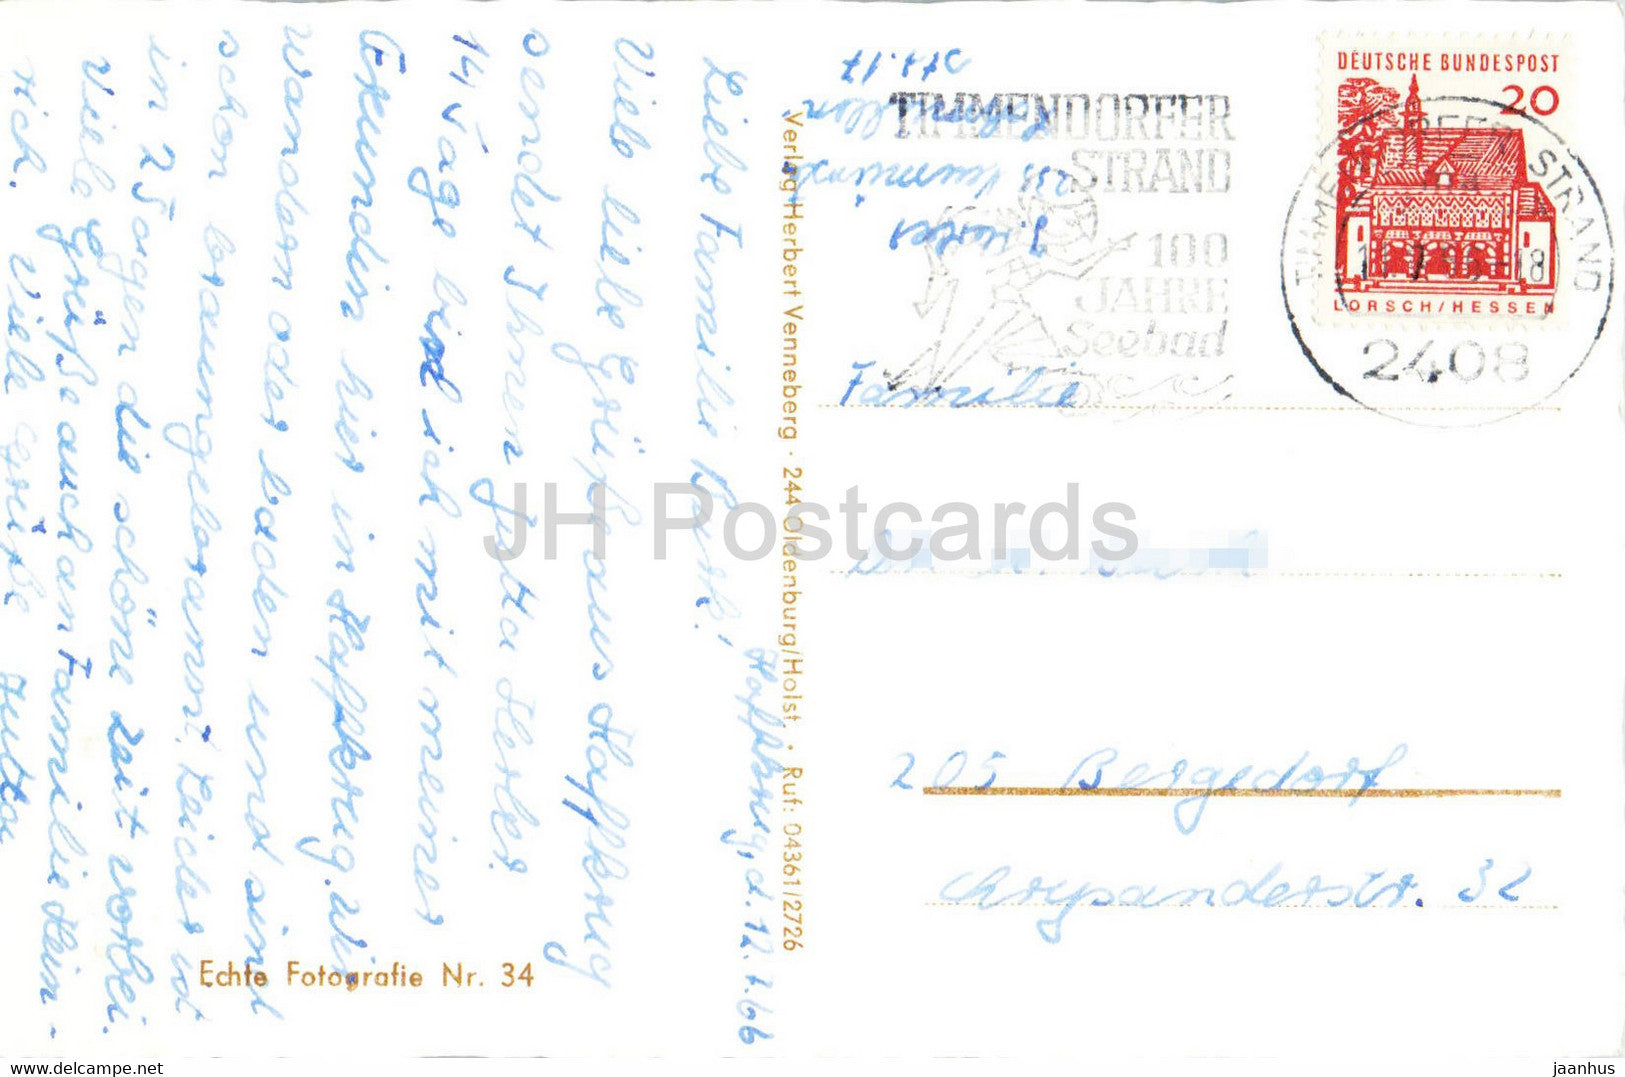 Haffkrug, d. 12.7.66
Liebe Familie
Viele liebe Grüße aus Haffkrug
sendet Ihnen Jutta
14 Tage bin ich mit meiner
Freundin hier in Haffkrug. Wir
wandern oder baden und sind
schon braungebrannt. Leider ist
in 2 Tagen die schöne Zeit vorbei.
Viele Grüße auch an Familie Hein-
rich. Viele Grüße Jutta
Echte Fotografie Nr. 34
Verlag Herbert Venneberg · 244 Oldenburg/Holst. · Ruf: 04361/2726
TIMMENDORFER
STRAND
100
JAHRE
Seebad
DEUTSCHE BUNDESPOST
20
LORSCH/HESSEN
TIMMENDORFER STRAND
2408
Familie
205 Bergedorf
Chrysanderstr. 32
JH Postcards
delcampe.net
jaanhus